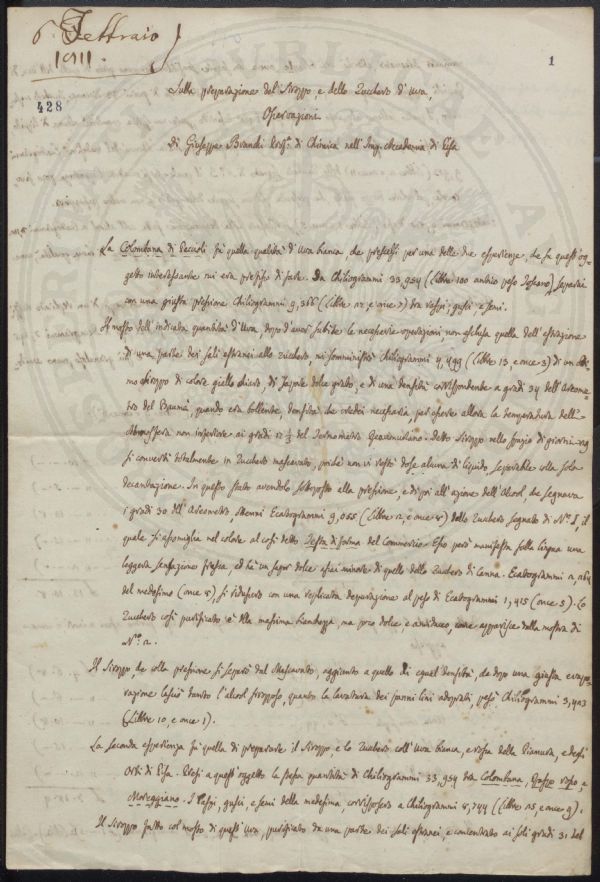 6. Febbraio
1911.
1
428
Sulla preparazione del Siroppo, e dello Zucchero d'uva,
Osservazioni
Di Giuseppe Branchi Profr. di Chimica nell'Imp. Accademia di Pisa
La Colombana di Peccioli fù quella qualità d'Uva bianca, che prescelsi per una delle due esperienze, che su quest'og-
getto interessante mi era prefisso di fare. Da Chiliogrammi 33,954 (Libbre 100 antico peso Toscano) separai
con una giusta pressione Chiliogrammi 9,386 (Libbre e once 7) tra raspi, gusci, e semi.
Il mosto dell'indicata quantità d'Uva, dopo d'aver subite le necessarie operazioni, non esclusa quella dell'estrazione
di una parte dei sali estranei allo zucchero mi somministrò Chiliogrammi 4,499 (Libbre 13, e once 3) di un otti-
mo siroppo di colore giallo chiaro, di sapore dolce grato, e di una densità corrispondente a gradi 34 dell'Areome-
tro del Baumé, quando era bollente, densità che credei necessaria per essere allora la temperatura dell'
Atmosfera non inferiore ai gradi 12 1/2 del Termometro Reaumuriano. Detto Siroppo nello spazio di giorni
si convertì totalmente in Zucchero mascavato, poiché non vi restò dose alcuna di liquido, separabile colla sola
decantazione. In questo stato avendolo sottoposto alla pressione, e di poi all'azione dell'Alcool, che segnava
i gradi 30 dell'Areometro, ottenni Ecatogrammi 9,055 (Libbre 2, e once 8) dello Zucchero segnato di N.° I, il
quale si assomiglia nel colore al così detto Testa di forma del Commercio. Esso però manifesta sulla lingua una
leggera sensazione fresca, ed hà un sapor dolce assai minore di quello dello Zucchero di Canna. Ecatogrammi
del medesimo (once 8), si ridussero con una replicata depurazione al peso di Ecatogrammi 1,415 (once 5). Lo
Zucchero così purificato è della massima bianchezza, ma poco dolce e amidaceo, come apparisce dalla mostra di
N.° 2.
Il Siroppo, che colla pressione si separò dal Mascavato, aggiunto a quello di egual densità, che dopo una giusta evapo-
razione lasciò tanto l'alcool siropposo, quanto la lavatura dei panni lini adoprati, pesò Chiliogrammi 3,423
(Libbre 10, e once 1).
La seconda esperienza fù quella di preparare il Siroppo, e lo Zucchero coll'Uva bianca, e rossa della Pianura, e degli
Orti di Pisa. Presi a quest'oggetto la stessa quantità di Chiliogrammi 33,954 tra Colombana, rosso, e
Moreggiano. I raspi, gusci, e semi della medesima, corrisposero a Chiliogrammi 8,744 (Libbre 25, e once 9).
Il Siroppo fatto col mosto di quest'Uva, purificato da una parte dei sali estranei, e concentrato ai soli gradi 31 del